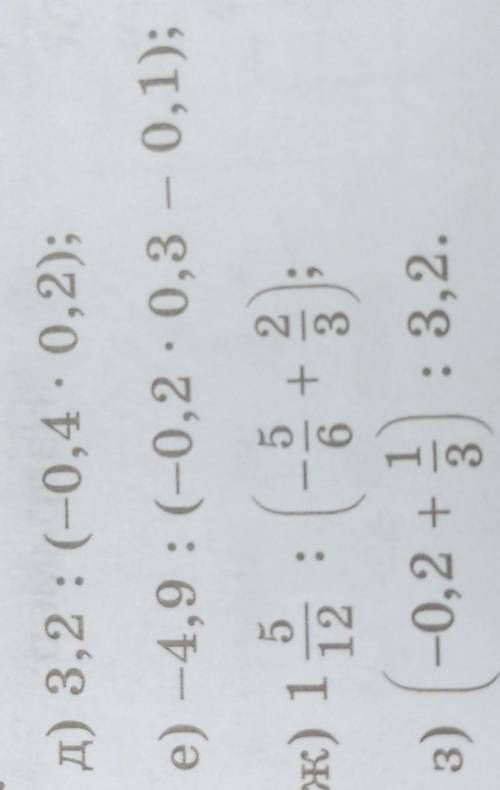 д) 3,2 : (−0,4 · 0,2);
е) −4,9 : (−0,2 · 0,3 − 0,1);
ж) 1 5/12 : (−5/6 + 2/3);
з) (−0,2 + 1/3) : 3,2.